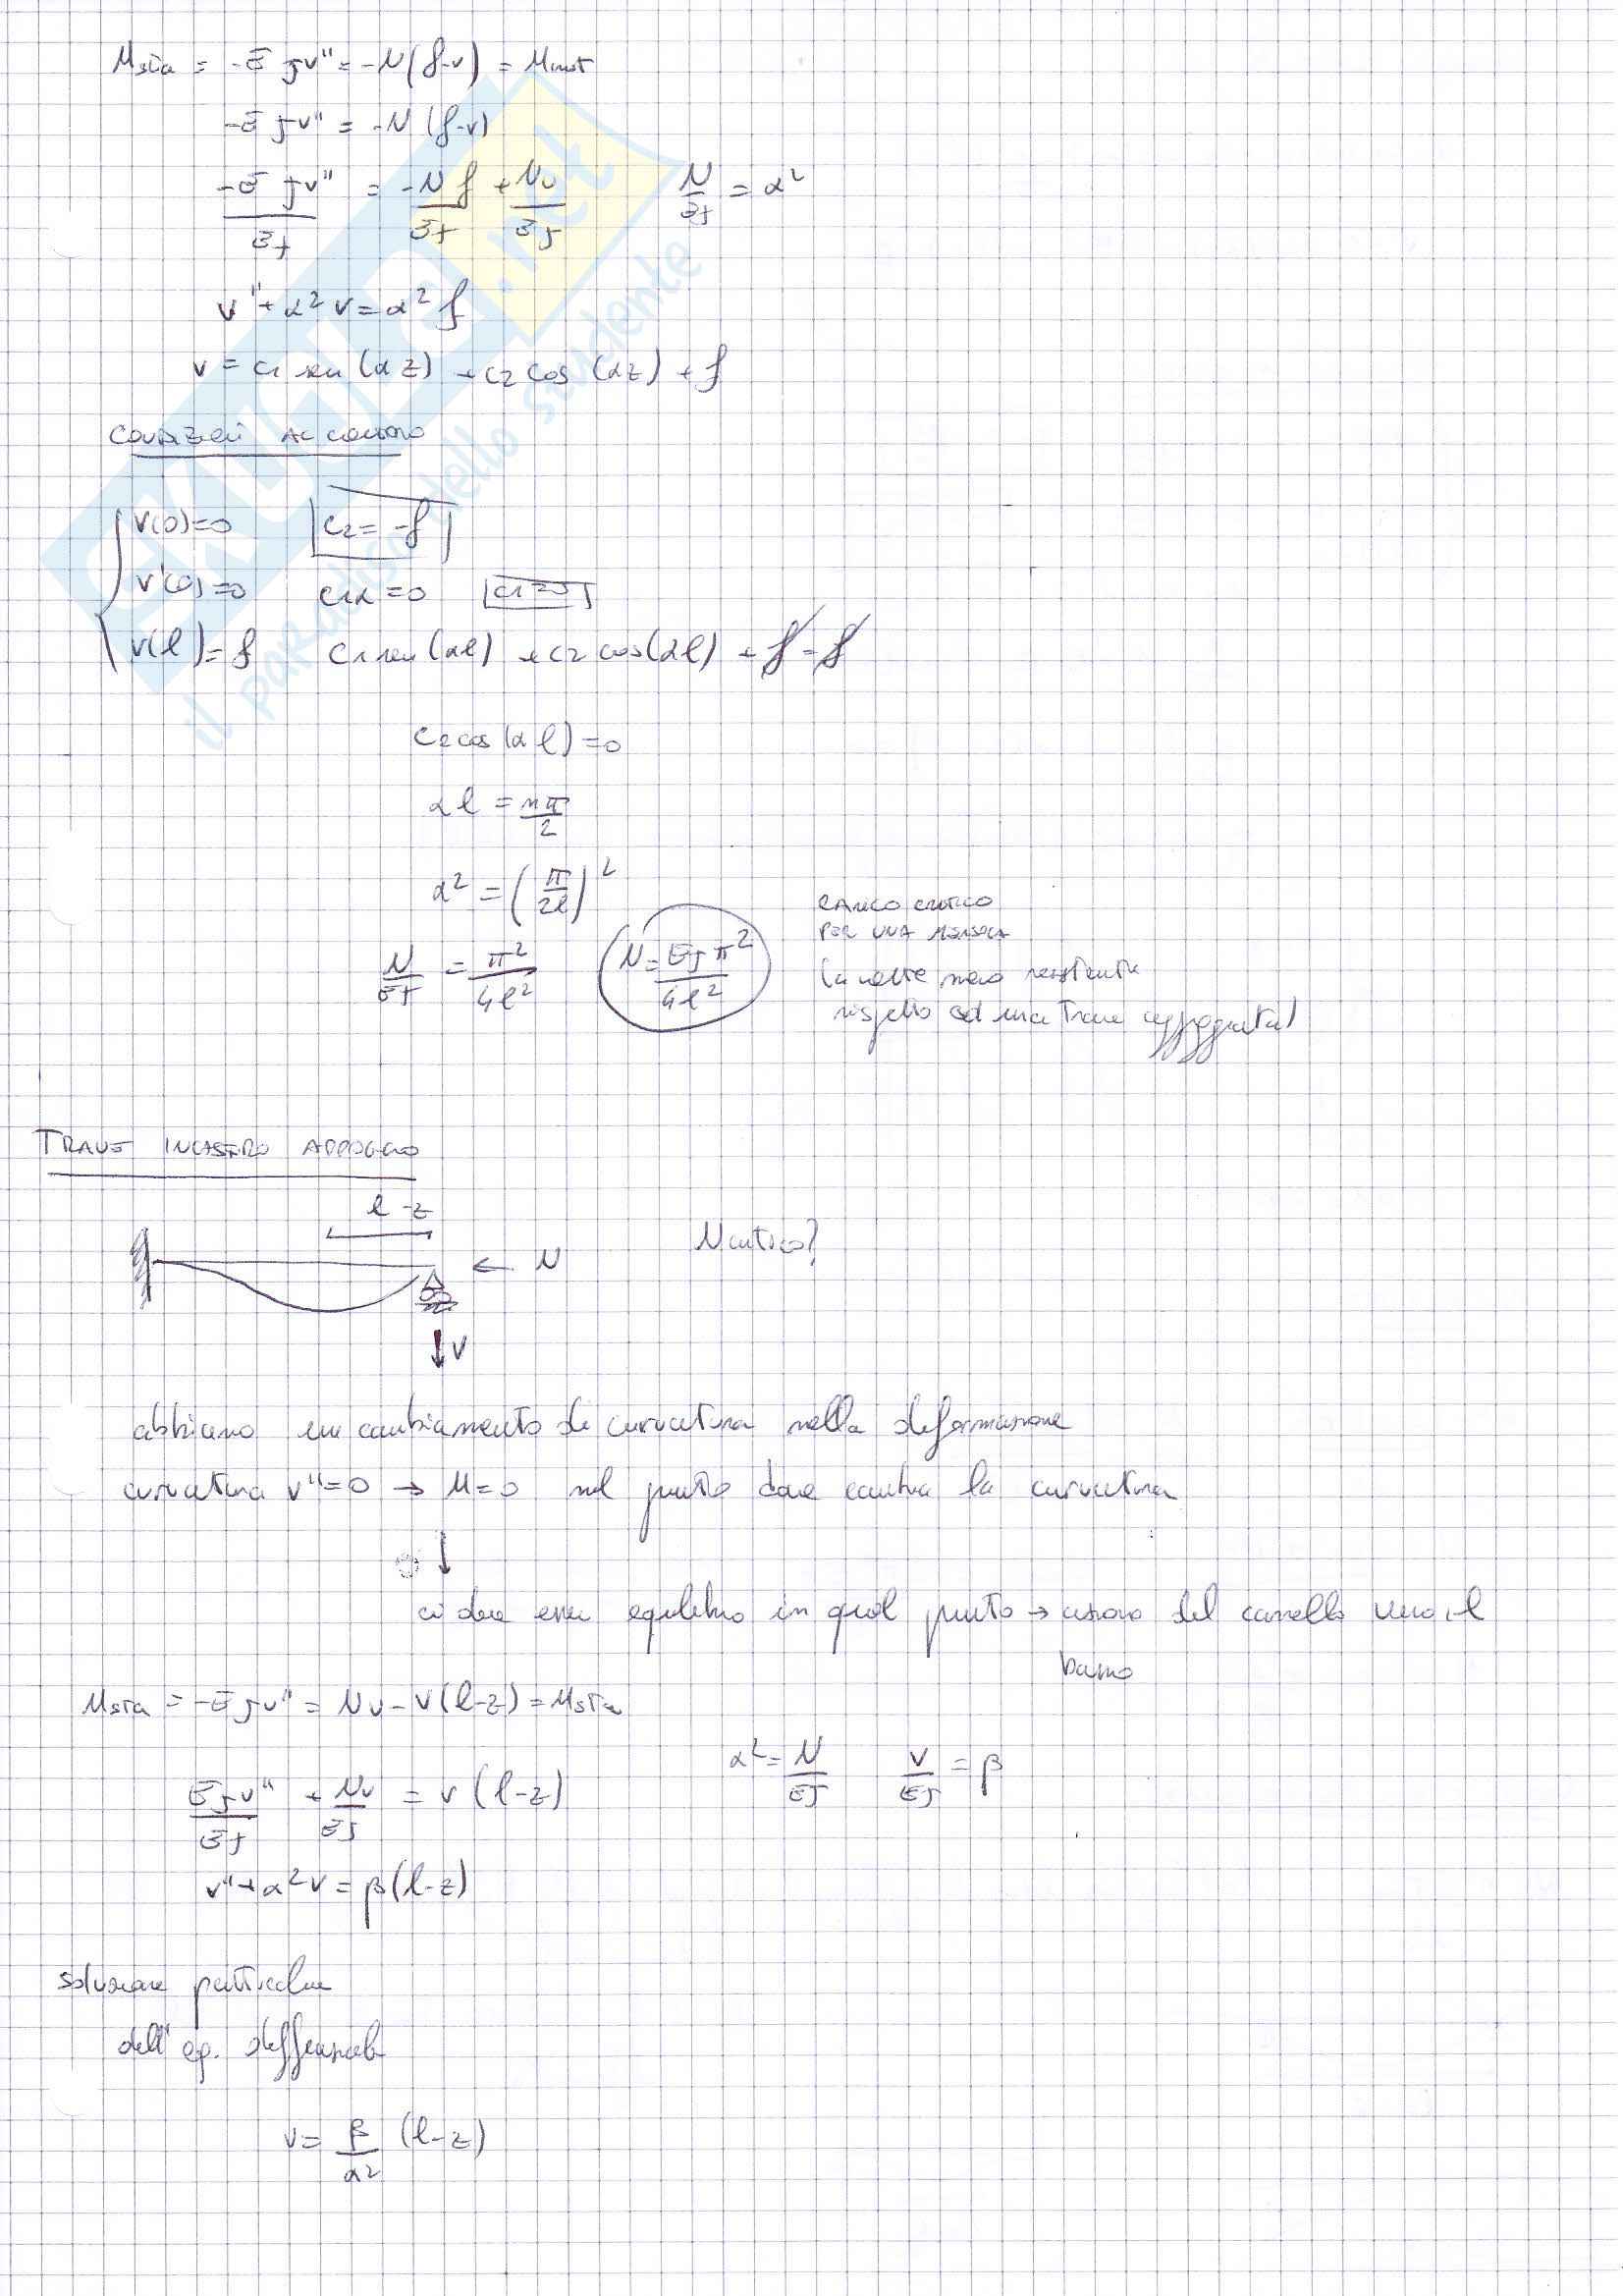 M sta = -EJv'' = -N(f-v) = M inst
-EJv'' = -N(f-v)
-EJv''/EJ = -Nf/EJ + Nv/EJ    N/EJ = α²
v''+α²v = α²f
v = c1 sen(αz) + c2 cos(αz) + f
CONDIZIONI AL CONTORNO
v(0)=0    c2 = -f
v'(0)=0    c1α=0    c1=0
v(l)=f    c1 sen(αl) + c2 cos(αl) + f = f
c2 cos(αl)=0
αl = nπ/2
α² = (π/2l)²
N/EJ = π²/4l²    N = EJπ²/4l²
CARICO CRITICO
PER UNA MENSOLA
(4 volte meno resistente
rispetto ad una trave appoggiata)
TRAVE INCASTRO APPOGGIO
l-z
N    N critico?
V
abbiamo un cambiamento di curvatura nella deformazione
curvatura v''=0 → M=0 nel punto dove cambia la curvatura
↓
ci deve essere equilibrio in quel punto → del carrello verso il
basso
M sta = -EJv'' = Nv - V(l-z) = M sta
α² = N/EJ    V/EJ = β
EJv''/EJ + Nv/EJ = V(l-z)
v''+α²v = β(l-z)
soluzione particolare
dell'eq. differenziale
v = β/α² (l-z)
EXUC.net
il paradiso dello studente